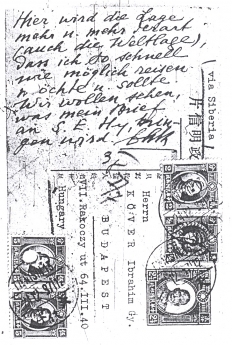 Hier wird die Lage
mehr u. mehr derart
(auch die Weltlage),
dass ich so schnell
wie möglich reisen
möchte u. sollte.
Wir wollen sehen,
was mein Brief
an S. E. Hy,
gen wird.
via Siberia
Herrn
KÖVER Ibrahim Gy.
BUDAPEST
VII.Rakoczy ut 64.III.40
Hungary